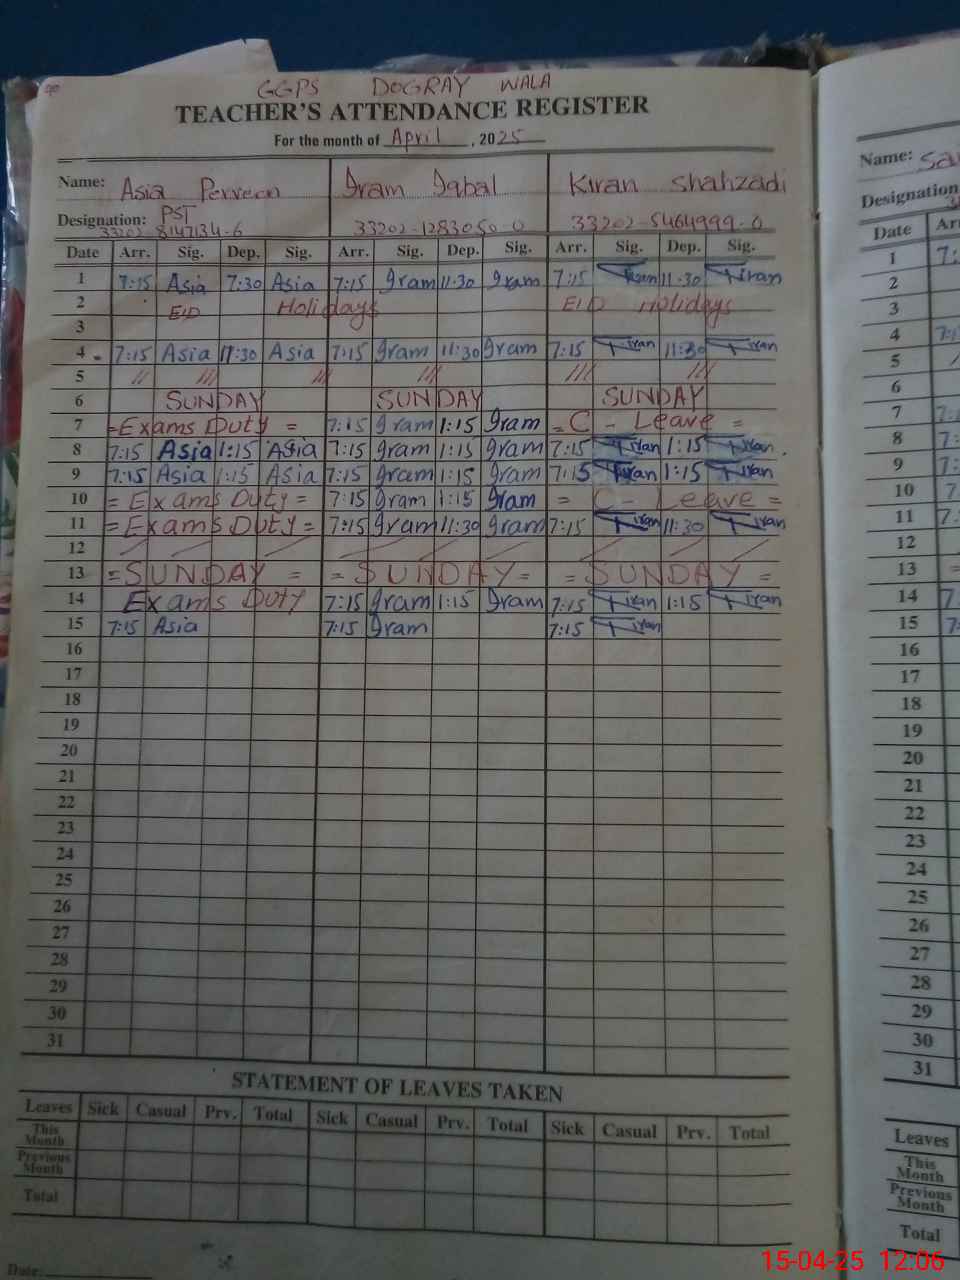 GGPS DOGRAY WALA
TEACHER'S ATTENDANCE REGISTER
For the month of April, 2025
Name: Asia Perveen Iram Iqbal Kiran Shahzadi
Designation: PST
33202-8147134-6 33202-1283050-0 33202-5464999-0
Date Arr. Sig. Dep. Sig. Arr. Sig. Dep. Sig. Arr. Sig. Dep. Sig.
1 7:15 Asia 7:30 Asia 7:15 Iram 11:30 Iram 7:15 Kiran 11:30 Kiran
2 EID Holidays EID Holidays
3
4 7:15 Asia 11:30 Asia 7:15 Iram 11:30 Iram 7:15 Kiran 11:30 Kiran
5 /// /// /// /// /// ///
6 SUNDAY SUNDAY SUNDAY
7 =Exams Duty = 7:15 Iram 1:15 Iram = C - Leave =
8 7:15 Asia 1:15 Asia 7:15 Iram 1:15 Iram 7:15 Kiran 1:15 Kiran
9 7:15 Asia 1:15 Asia 7:15 Iram 1:15 Iram 7:15 Kiran 1:15 Kiran
10 = Exams Duty = 7:15 Iram 1:15 Iram = C - Leave =
11 = Exams Duty = 7:15 Iram 11:30 Iram 7:15 Kiran 11:30 Kiran
12
13 =SUNDAY = = SUNDAY = = SUNDAY =
14 Exams Duty 7:15 Iram 1:15 Iram 7:15 Kiran 1:15 Kiran
15 7:15 Asia 7:15 Iram 7:15 Kiran
16
17
18
19
20
21
22
23
24
25
26
27
28
29
30
31
STATEMENT OF LEAVES TAKEN
Leaves Sick Casual Prv. Total Sick Casual Prv. Total Sick Casual Prv. Total
This Month
Previous Month
Total
Date:
Name:
Designation
Date
1
2
3
4
5
6
7
8
9
10
11
12
13
14
15
16
17
18
19
20
21
22
23
24
25
26
27
28
29
30
31
Leaves
This Month
Previous Month
Total
15-04-25 12:06